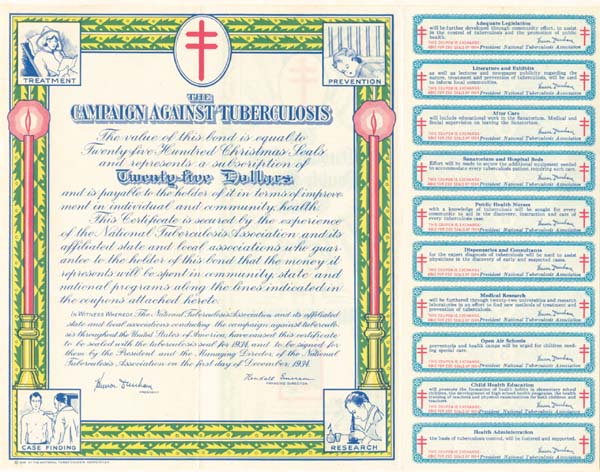 TREATMENT
PREVENTION
THE
CAMPAIGN AGAINST TUBERCULOSIS
The value of this bond is equal to
Twenty-five Hundred Christmas Seals
and represents a subscription of
Twenty-five Dollars
and is payable to the holder in terms of improve
ment in individual and community health.
This Certificate is secured by the experience
of the National Tuberculosis Association and its
affiliated state and local associations who guar
antee to the holder of this bond that the money it
represents will be spent in community, state and
national programs along the lines indicated in
the coupons attached hereto.
IN WITNESS WHEREOF, The National Tuberculosis Association and its affiliated
state and local associations conducting the campaign against tubercu-
losis throughout the United States of America, have caused this certificate
to be sealed with the tuberculosis seal for 1934, and to be signed for
them by the President and the Managing Director of the National
Tuberculosis Association on the first day of December, 1934.
Kendall Emerson
PRESIDENT
MANAGING DIRECTOR
CASE FINDING
RESEARCH
Adequate Legislation
will be further developed through community effort, to assist
in the control of tuberculosis and the promotion of public
health.
THIS COUPON IS EXCHANGE-
ABLE FOR 250 SEALS OF 1934
President National Tuberculosis Association
Literature and Exhibits
as well as lectures and newspaper publicity regarding the
nature, treatment and prevention of tuberculosis, will be used
to inform local communities.
THIS COUPON IS EXCHANGE-
ABLE FOR 250 SEALS OF 1934
President National Tuberculosis Association
After Care
will include educational work in the Sanatorium. Medical and
Social supervision on leaving the Sanatorium.
THIS COUPON IS EXCHANGE-
ABLE FOR 250 SEALS OF 1934
President National Tuberculosis Association
Sanatorium and Hospital Beds
Effort will be made to secure the additional equipment needed
to accommodate every tuberculosis patient requiring such care.
THIS COUPON IS EXCHANGE-
ABLE FOR 250 SEALS OF 1934
President National Tuberculosis Association
Public Health Nurses
with a knowledge of tuberculosis will be sought for every
community to aid in the discovery, instruction and care of
every tuberculosis case.
THIS COUPON IS EXCHANGE-
ABLE FOR 250 SEALS OF 1934
President National Tuberculosis Association
Dispensaries and Consultants
for the expert diagnosis of tuberculosis will be used to assist
physicians in the discovery of early and suspected cases.
THIS COUPON IS EXCHANGE-
ABLE FOR 250 SEALS OF 1934
President National Tuberculosis Association
Medical Research
will be furthered through twenty-two universities and research
laboratories in an effort to find new methods of treatment and
prevention of tuberculosis.
THIS COUPON IS EXCHANGE-
ABLE FOR 250 SEALS OF 1934
President National Tuberculosis Association
Open Air Schools
preventoria and health camps will be urged for children need-
ing special care.
THIS COUPON IS EXCHANGE-
ABLE FOR 250 SEALS OF 1934
President National Tuberculosis Association
Child Health Education
will promote the formation of health habits in elementary school
children, the development of high school health programs, the health
training of teachers and physical examinations for both children and
teachers.
THIS COUPON IS EXCHANGE-
ABLE FOR 250 SEALS OF 1934
President National Tuberculosis Association
Health Administration
the basis of tuberculosis control, will be fostered and supported.
THIS COUPON IS EXCHANGE-
ABLE FOR 250 SEALS OF 1934
President National Tuberculosis Association